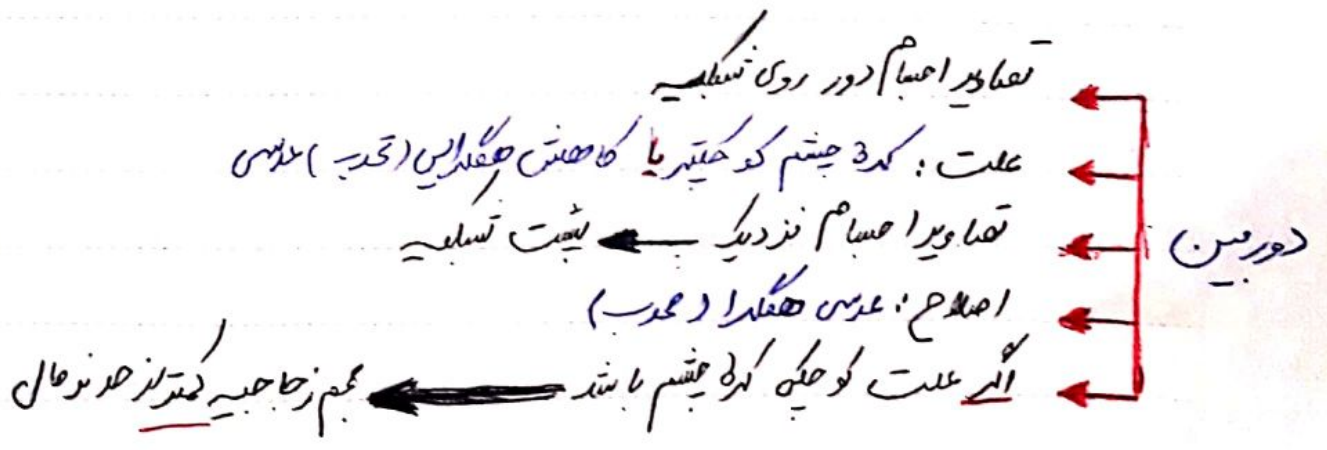 دوربین
تصاویر اجسام دور روی شبکیه
علت : کرهٔ چشم کوچیکتر یا کاهش همگرایی (تحدب) عدسی
تصاویر اجسام نزدیک ← پشت شبکیه
اصلاح : عدسی همگرا (محدب)
اگر علت کوچکی کرهٔ چشم باشد ← حجم زجاجیه کمتر از حد نرمال